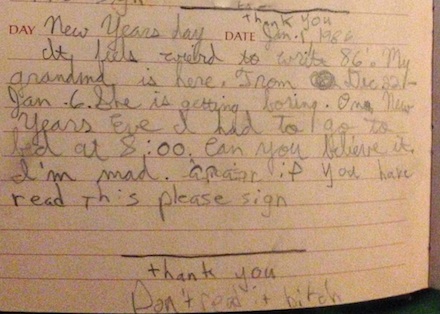 thank you
DAY New Years day DATE Jan. 1, 1986
It feels weird to write 86'. My
grandma is here. From Dec 22-
Jan. 6. She is getting boring. One New
Years Eve I had to go to
bed at 8:00. Can you believe it.
I'm mad. again if you have
read this please sign
thank you
Don't read it bitch